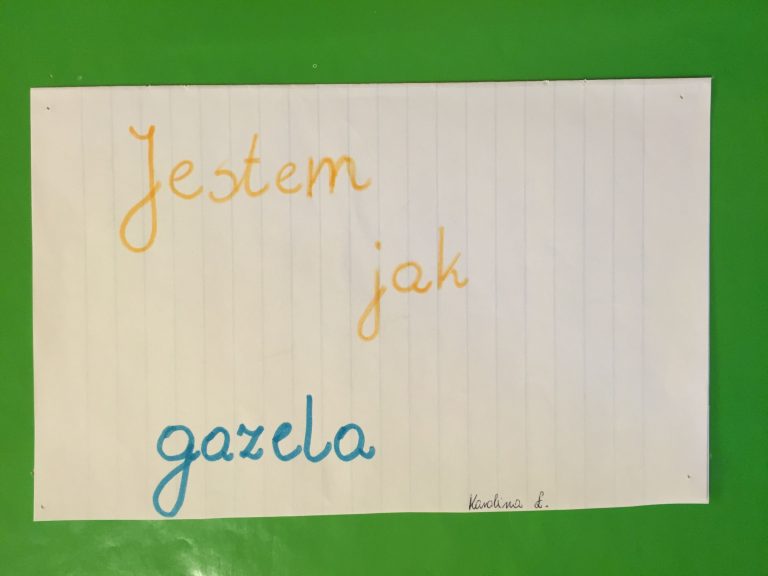 Jestem
jak
gazela
Karolina Ł.